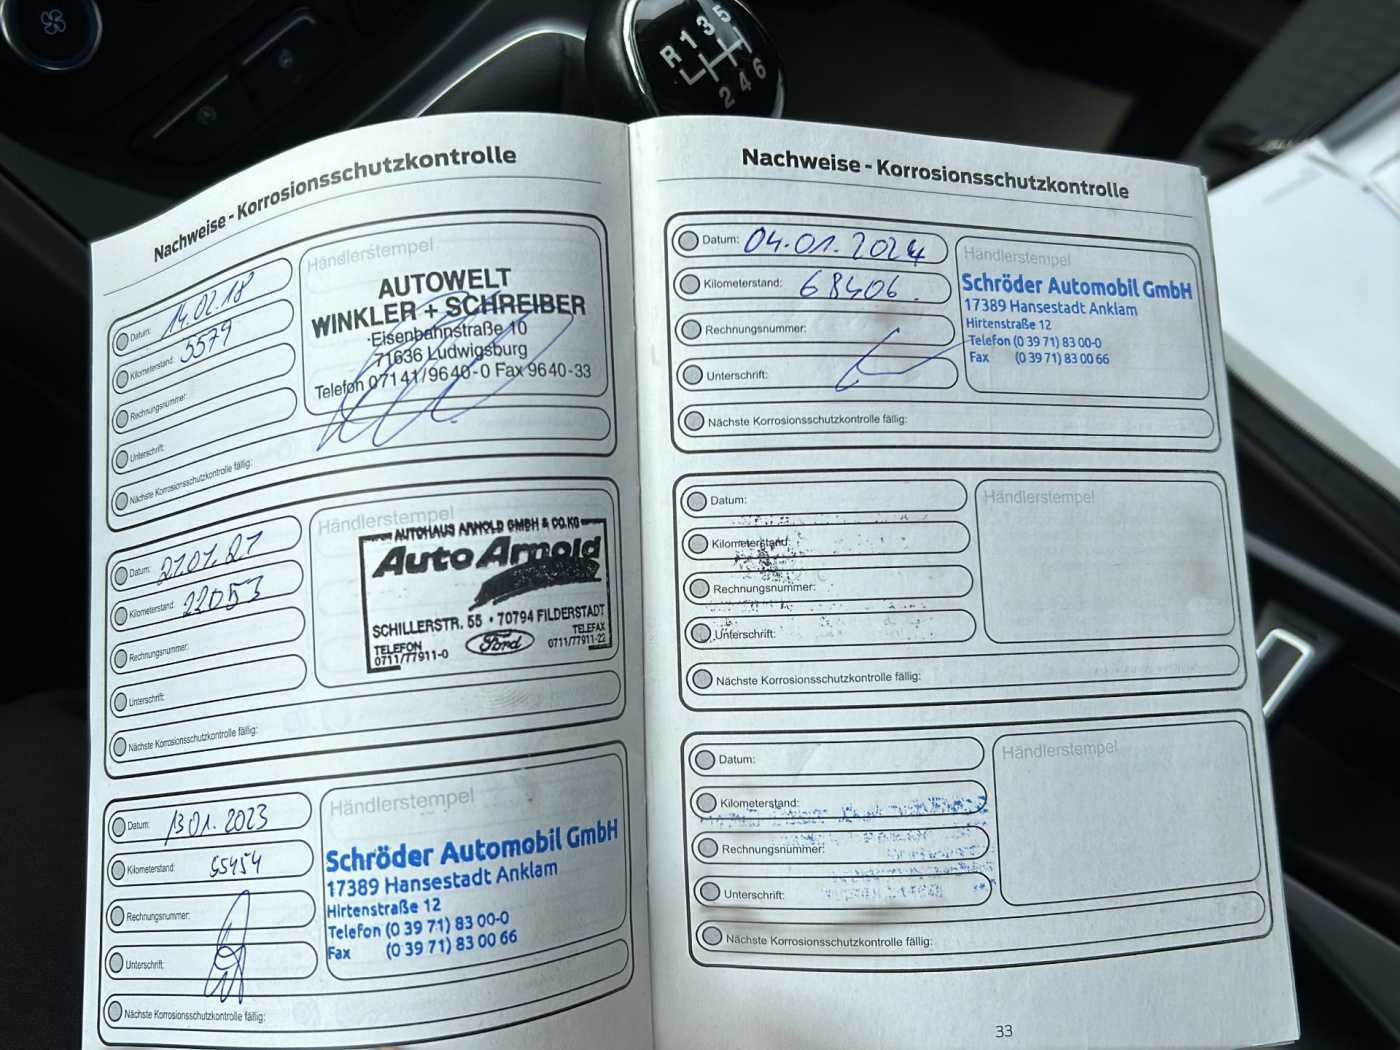 R 1 3 5
2 4 6
Nachweise - Korrosionsschutzkontrolle
Datum: 14.02.18
Kilometerstand: 5579
Rechnungsnummer:
Unterschrift:
Nächste Korrosionsschutzkontrolle fällig:
Händlerstempel
AUTOWELT
WINKLER + SCHREIBER
Eisenbahnstraße 10
71636 Ludwigsburg
Telefon 07141/9640-0 Fax 9640-33
Datum: 21.01.21
Kilometerstand: 22053
Rechnungsnummer:
Unterschrift:
Nächste Korrosionsschutzkontrolle fällig:
Händlerstempel
AUTOHAUS ARNOLD GMBH & CO.KG
Auto Arnold
SCHILLERSTR. 55 · 70794 FILDERSTADT
TELEFON
0711/77911-0
Ford
TELEFAX
0711/77911-22
Datum: 13.01.2023
Kilometerstand: 55454
Rechnungsnummer:
Unterschrift:
Nächste Korrosionsschutzkontrolle fällig:
Händlerstempel
Schröder Automobil GmbH
17389 Hansestadt Anklam
Hirtenstraße 12
Telefon (0 39 71) 83 00-0
Fax (0 39 71) 83 00 66
Nachweise - Korrosionsschutzkontrolle
Datum: 04.01.2024
Kilometerstand: 68406.
Rechnungsnummer:
Unterschrift:
Nächste Korrosionsschutzkontrolle fällig:
Händlerstempel
Schröder Automobil GmbH
17389 Hansestadt Anklam
Hirtenstraße 12
Telefon (0 39 71) 83 00-0
Fax (0 39 71) 83 00 66
Datum:
Kilometerstand:
Rechnungsnummer:
Unterschrift:
Nächste Korrosionsschutzkontrolle fällig:
Händlerstempel
Datum:
Kilometerstand:
Rechnungsnummer:
Unterschrift:
Nächste Korrosionsschutzkontrolle fällig:
Händlerstempel
33